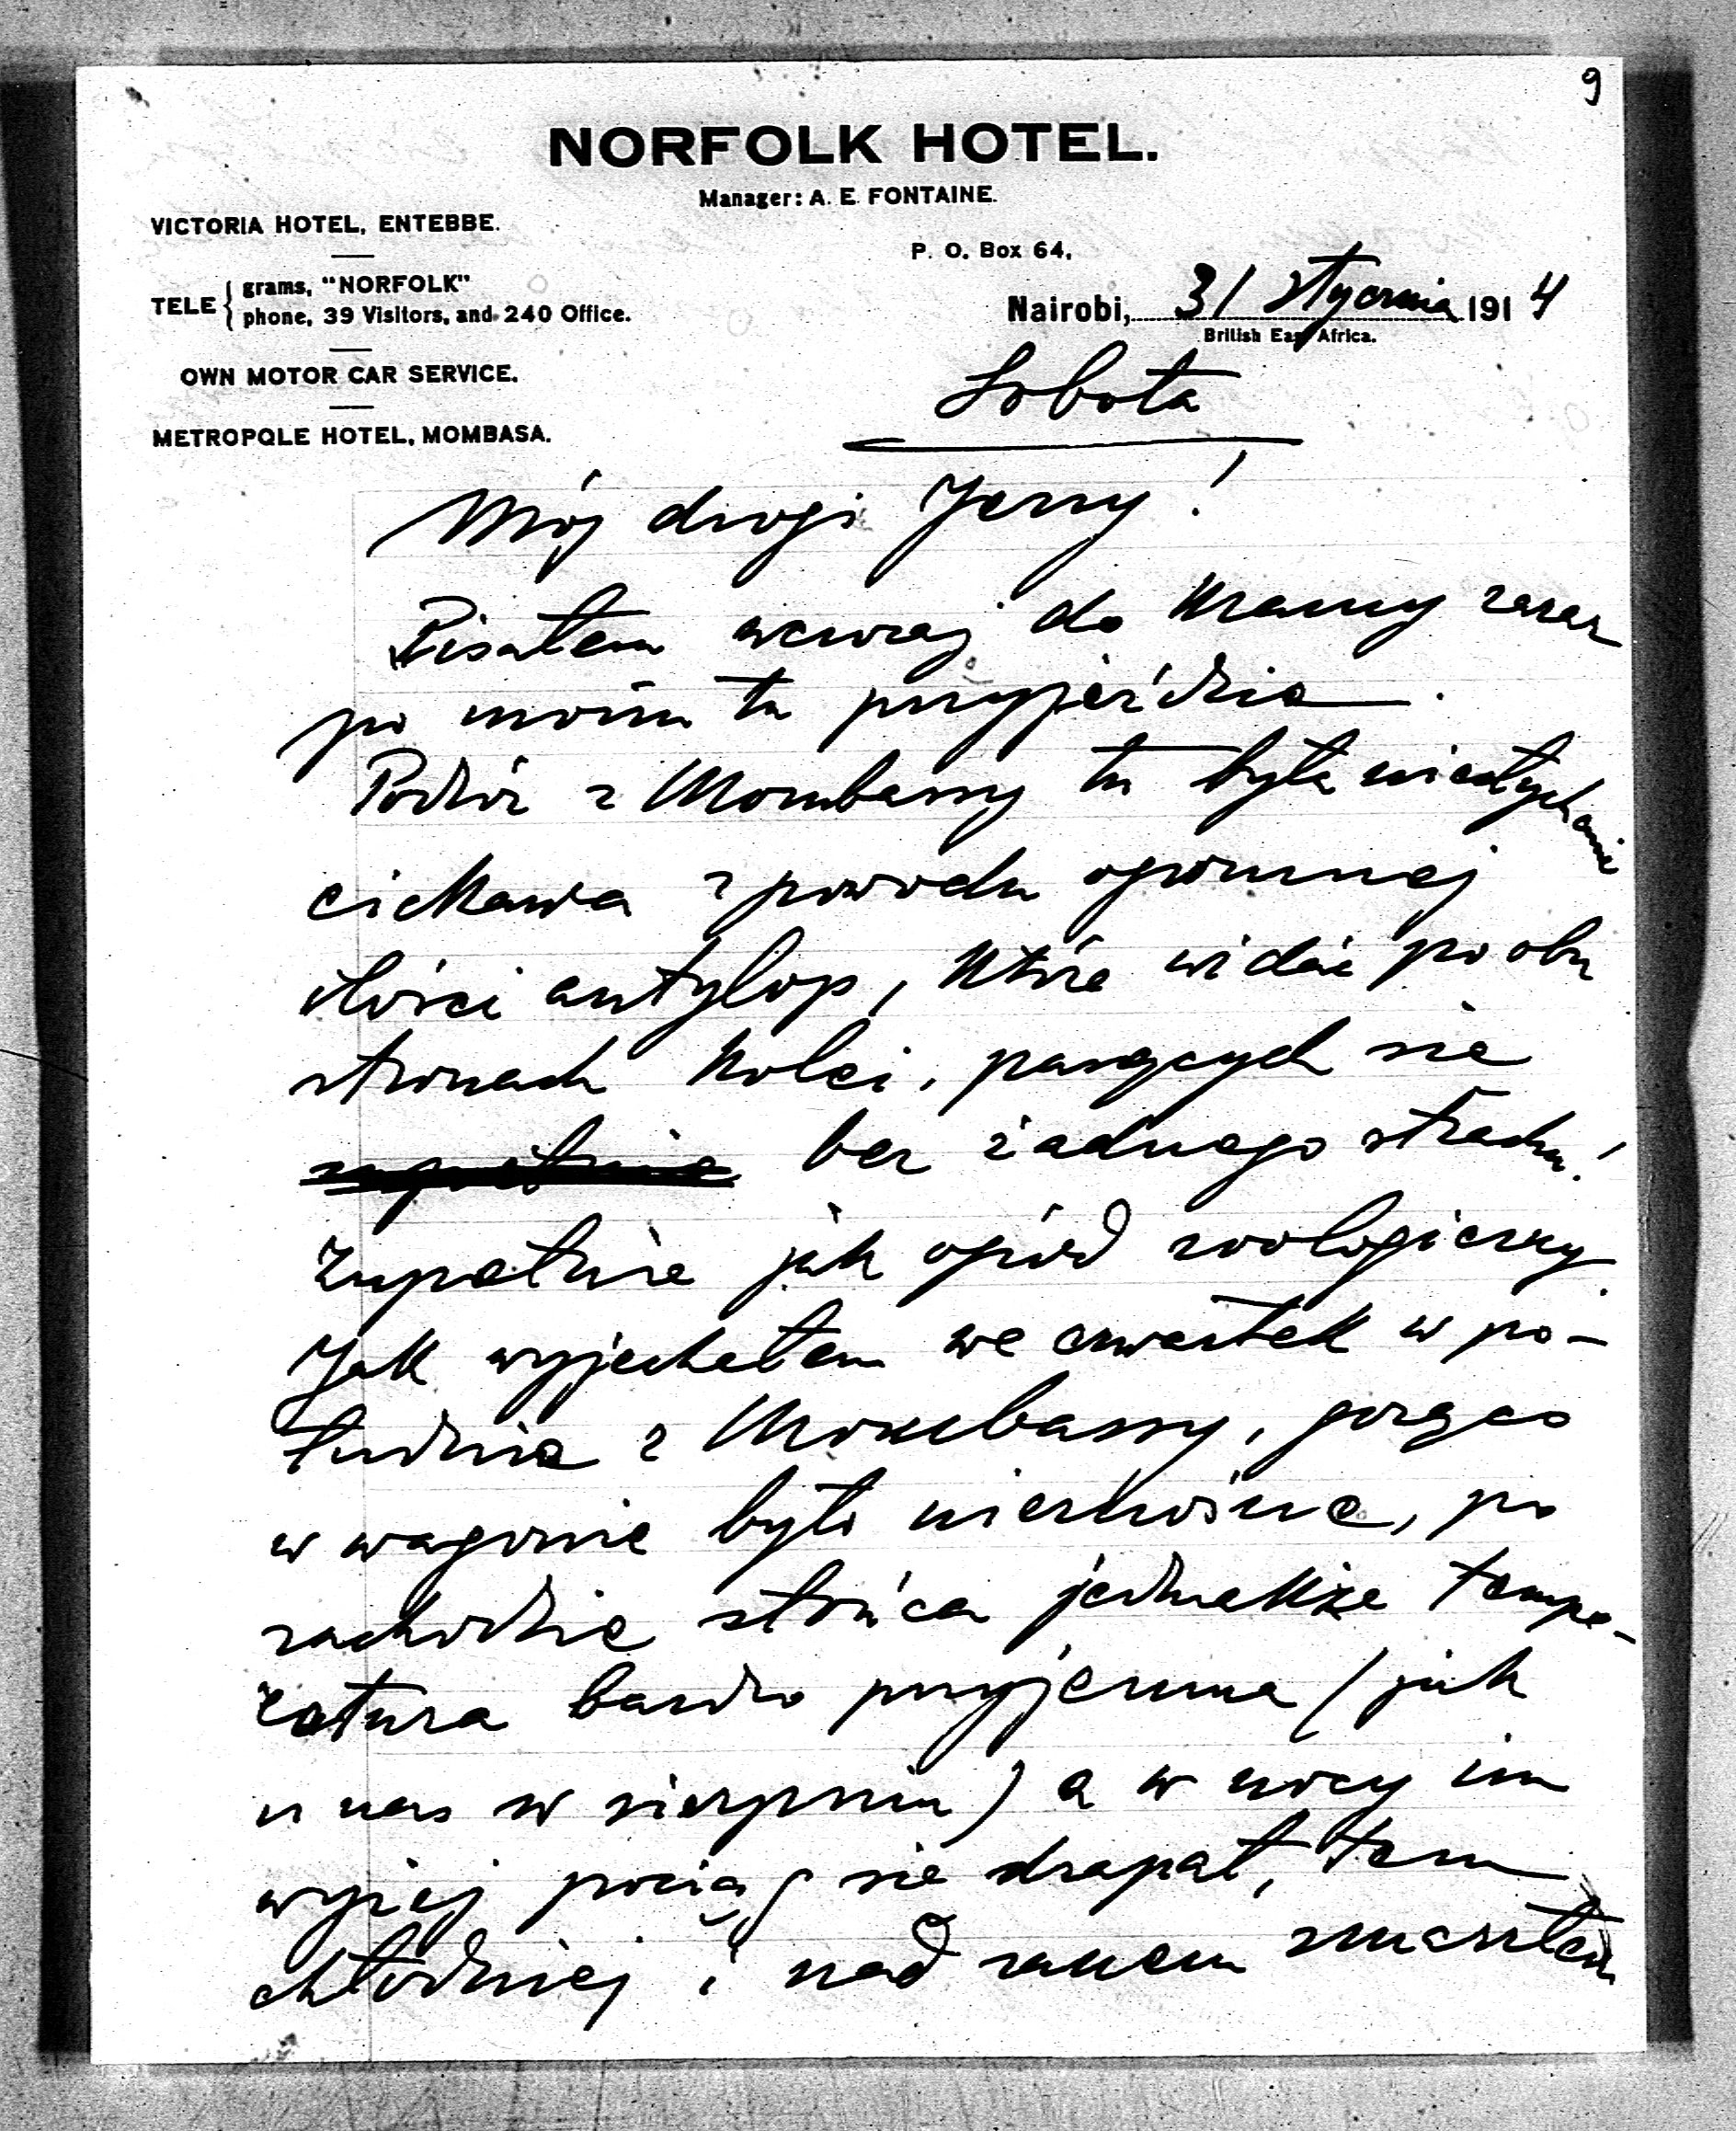 9
NORFOLK HOTEL.
Manager: A. E. FONTAINE.
VICTORIA HOTEL, ENTEBBE.
P. O. Box 64,
TELE { grams, "NORFOLK"
phone, 39 Visitors, and 240 Office.
Nairobi, 31 stycznia 1914
British East Africa.
OWN MOTOR CAR SERVICE.
METROPOLE HOTEL, MOMBASA.
Sobota
Mój drogi Jerzy!
Pisałem wczoraj do Mamy zaraz
po moim tu przyjeździe.
Podróż z Mombassy tu była niesłychanie
ciekawa z powodu ogromnej
ilości antylop, które widać po obu
stronach kolei, pasących się
zupełnie bez żadnego strachu!
Zupełnie jak ogród zoologiczny.
Jak wyjechałem we czwartek w po-
łudnie z Mombassy, gorąco
w wagonie było nieznośne, po
zachodzie słońca jednakże tempe-
ratura bardzo przyjemna (jak
u nas w sierpniu) a w nocy im
wyżej pociąg się drapał, tem
chłodniej i nad ranem zmarzłem